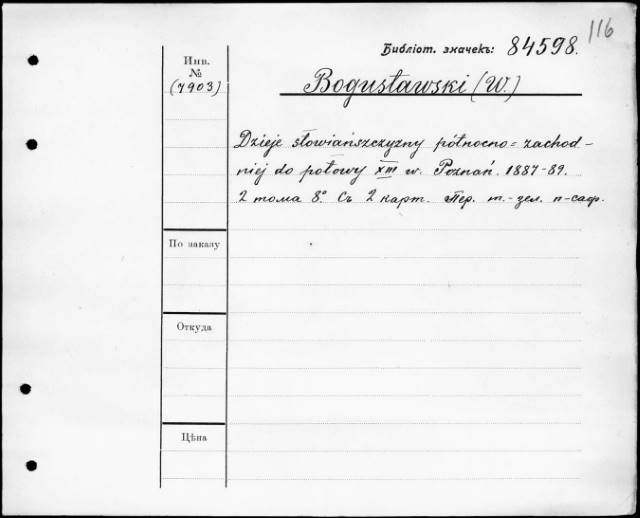 116
Библіот. значекъ: 84598.
Инв.
№
(7903)
Bogusławski (W.)
Dzieje słowiańszczyzny północno=zachod-
niéj do połowy XIII w. Poznań. 1887-89.
2 тома 8º. Съ 2 карт. Пер. т.-зел. п-саф.
По заказу
Откуда
Цѣна